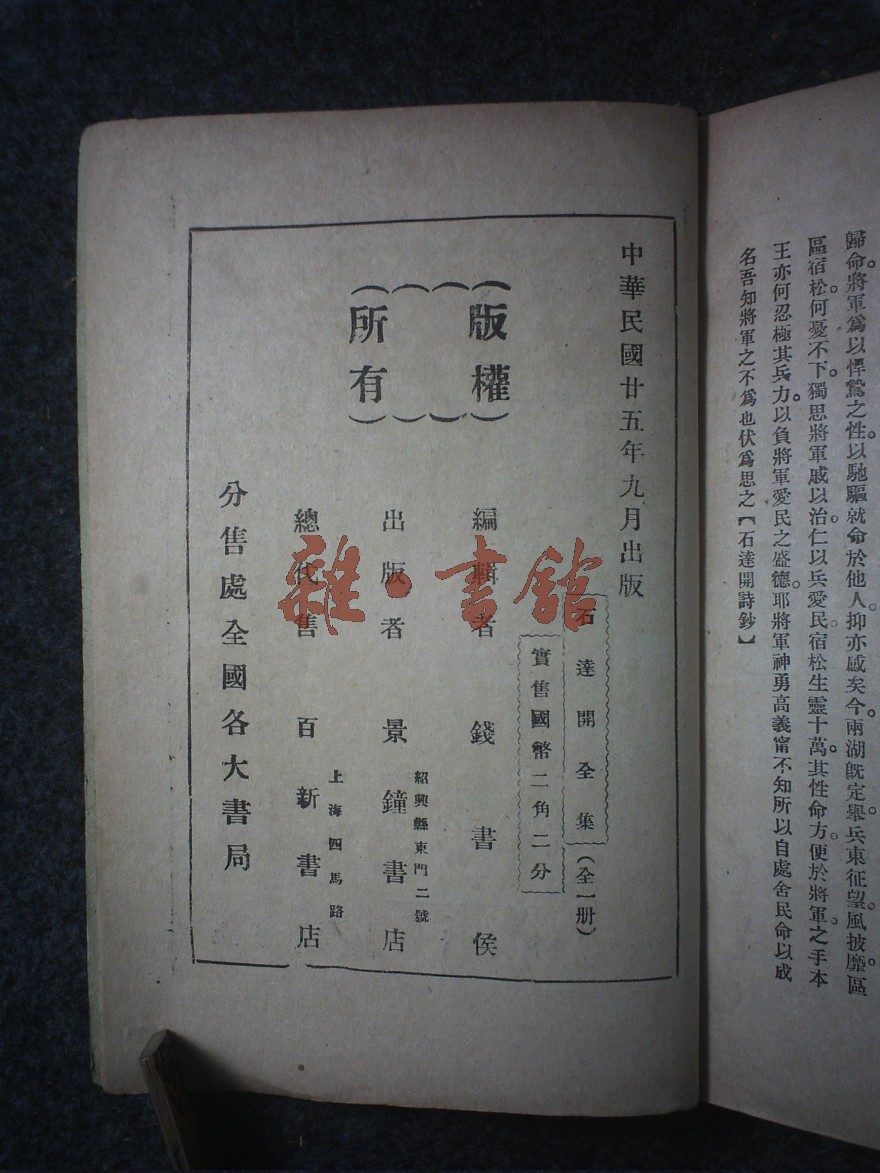 歸命。將軍爲以悍鷙之性。以馳驅就命於他人。抑亦慼矣。今兩湖旣定。舉兵東征。望風披靡。區
區宿松。何憂不下。獨思將軍戚以治仁以兵愛民。宿松生靈十萬。其性命方便於將軍之手。本
王亦何忍極其兵力。以負將軍愛民之盛德耶。將軍神勇高義。甯不知所以自處。舍民命以成
名。吾知將軍之不爲也。伏爲思之【石達開詩鈔】
中華民國廿五年九月出版
石達開全集(全一册)
實售國幣二角二分
(版權)
(所有)
編輯者 錢書侯
紹興縣東門二號
出版者 景鐘書店
上海四馬路
總代售 百新書店
分售處全國各大書局
雜·書館